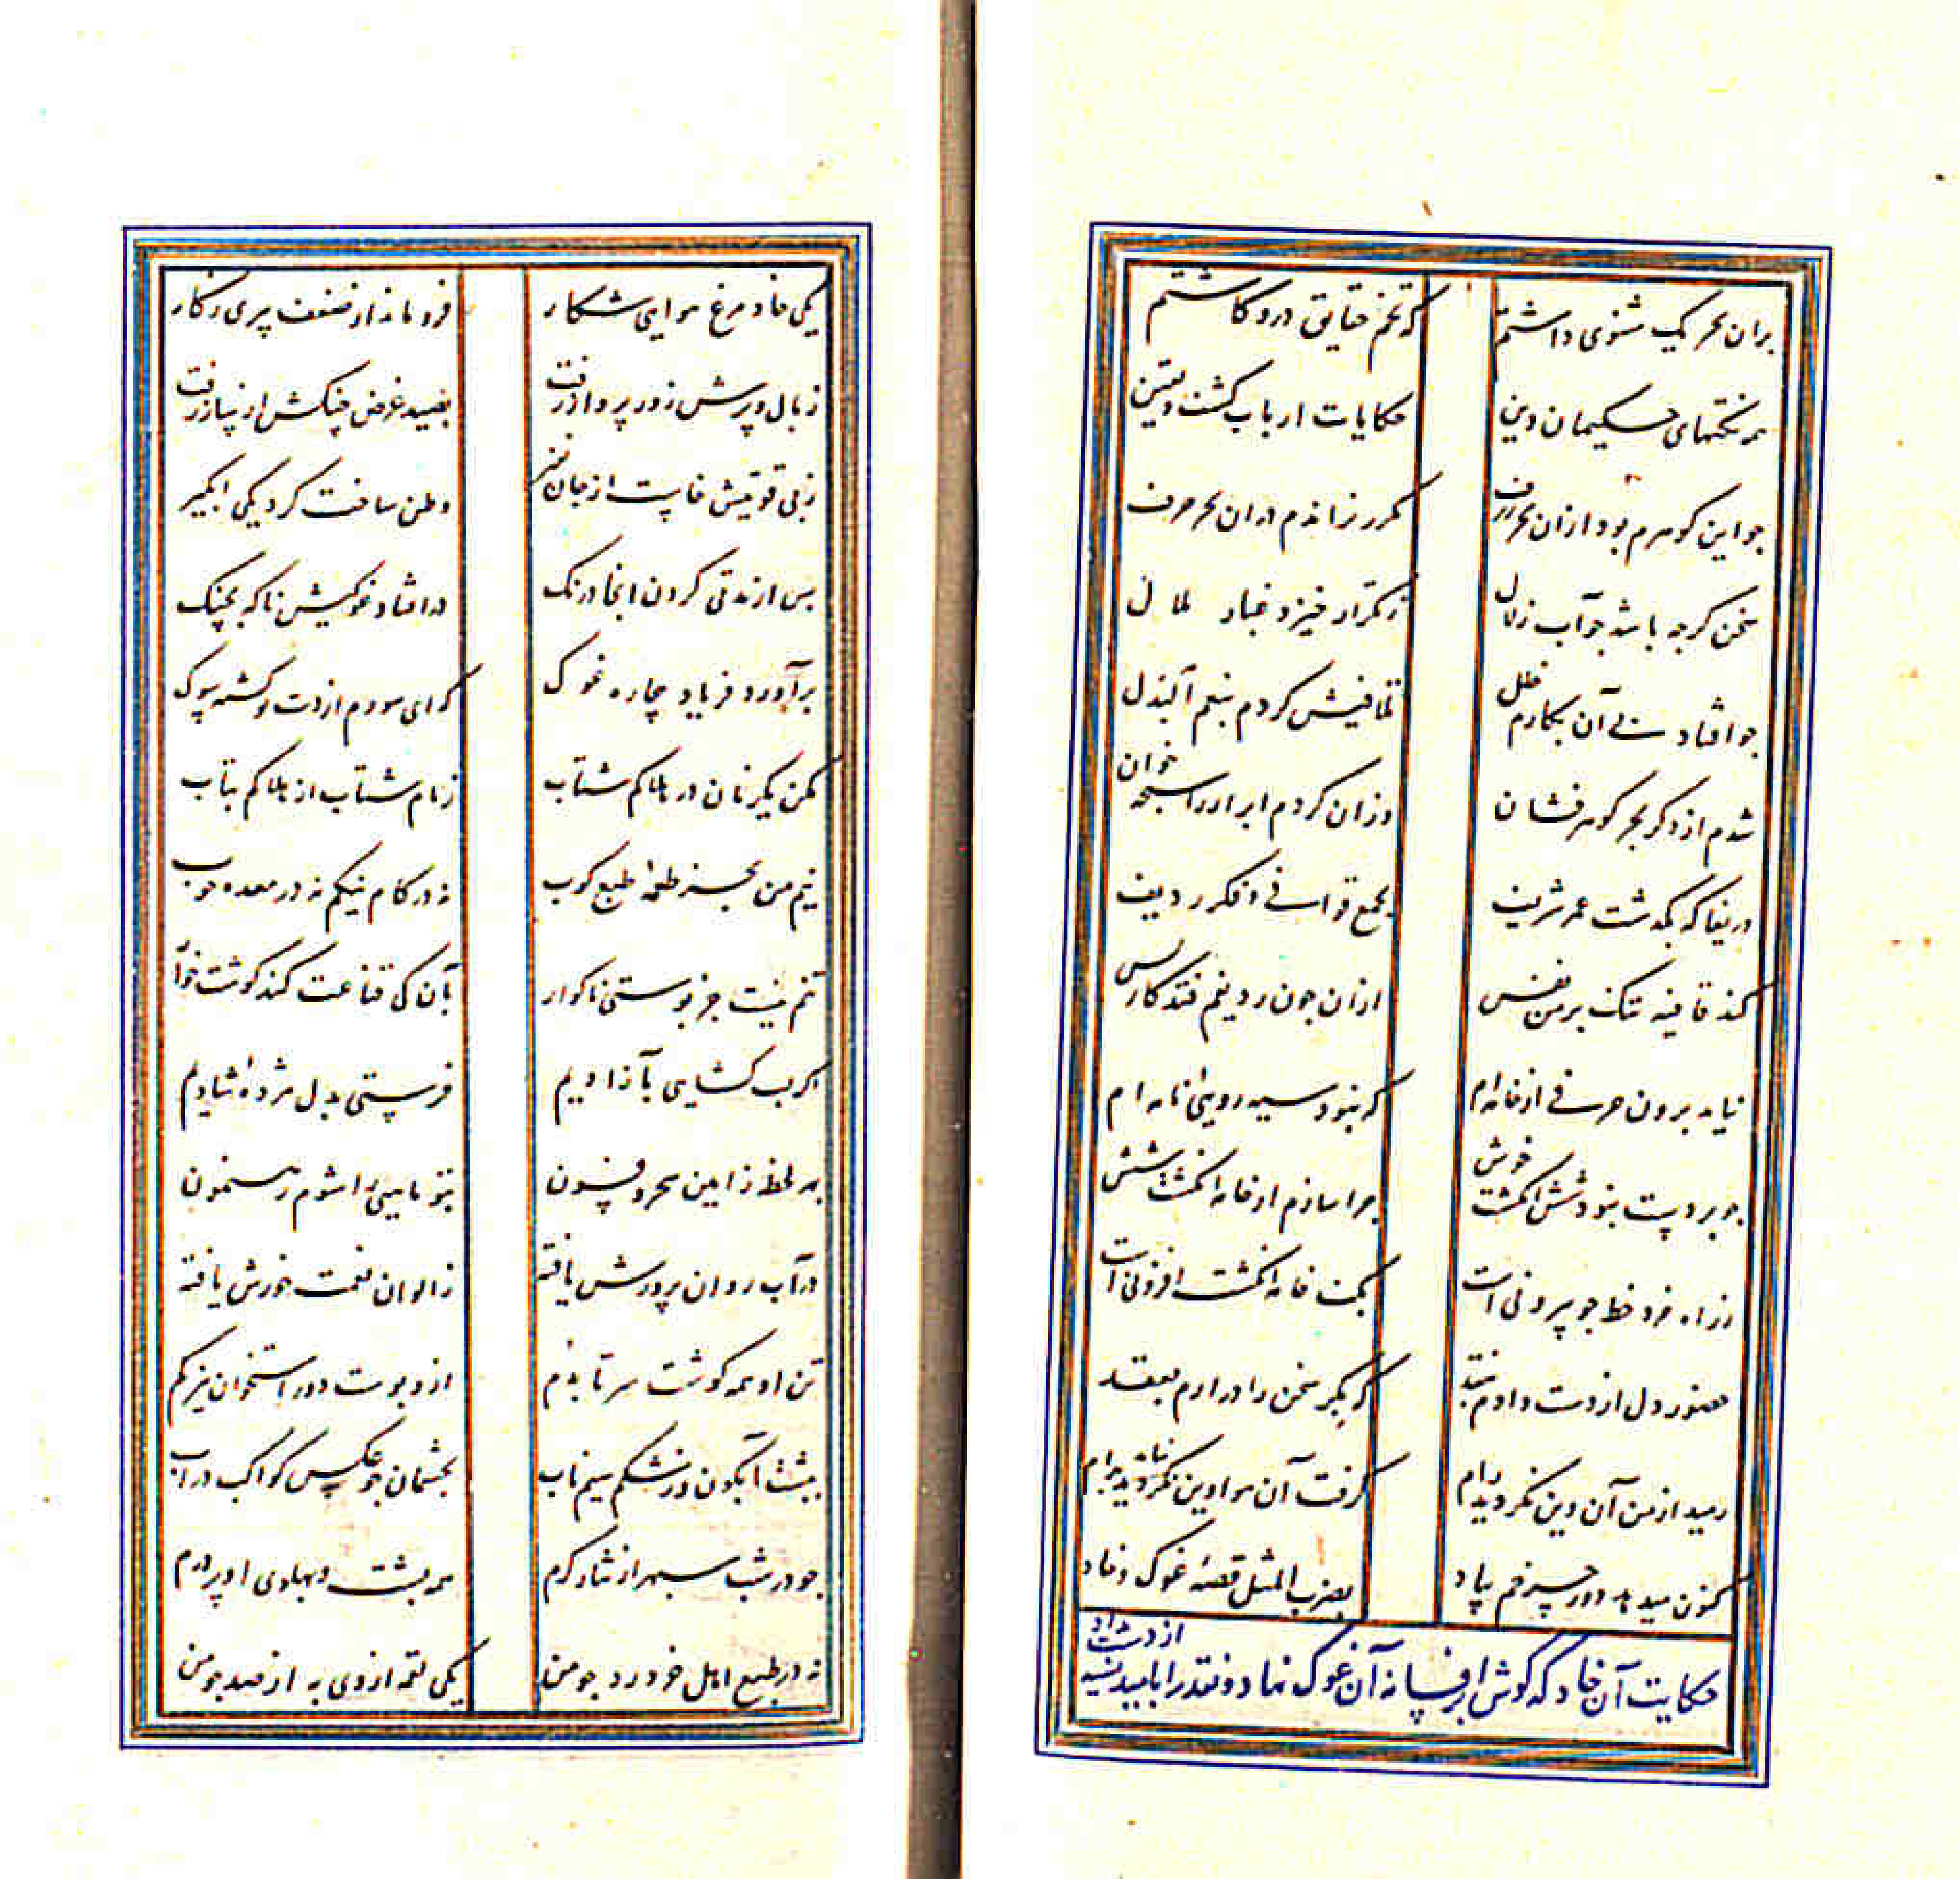 بران بحر یک مثنوی داشتم که تخم حقایق درو کاشتم
همه نکتهای حکیمان دین حکایات ارباب کشف و یقین
جو این کوهرم بود ازان بحر ژرف مکرر نراندم دران بحر حرف
سخن کرجه باشد جو آب زلال ز تکرار خیزد غبار ملال
جو افتاد آن بکارم خلل تلافیش کردم بنعم البدل
شدم از دکر بحر کوهرفشان وزان کردم ابرار را سبحه خوان
دریغا که بکذشت عمر شریف بجمع قوافی و فکر ردیف
کند قافیه تنک بر من نفس ازان جون ردیفم فتد کار پس
نیاید برون حرفی از خامه‌ام که نبود سیه رویئ نامه ام
جو بر دست نبود شش انکشت خوش جرا سازم از خامه انکشت شش
ز راه خرد خط جو بیرونی است بکف خامه انکشت افزونی است
حضور دل از دست دادم بنقد که بکر سخن را درارم بعقد
رمید از من آن وین نکردید رام کرفت آن هوا وین نکردید رام
کنون میدهد دور جرخم بیاد بضرب المثل قصهٔ غوک و خاد
حکایت آن خاد که کوش بر افسانه آن غوک نهاد و نقد را بامید نسیه از دست داد
یکی خاد مرغ هوایی شکار فرو ماند از ضعف پیری ز کار
ز بال و پرش زور پرواز رفت بصید غرض چنکش از ساز رفت
ز بی قوتیش خاست از جان نفیر وطن ساخت کرد یکی ابکیر
بس از مدتی کردن انجا درنک درافتاد غوکیش ناکه بچنک
برآورد فریاد بیچاره غوک که ای سورم از دست تو کشته سوک
مکن یکزمان در هلاکم شتاب زمام شتاب از هلاکم بتاب
نیم من بجز طعمهٔ طبع کوب نه در کام نیکم نه در معده خوب
تنم نیست جز بوستی ناکوار بآن کی قناعت کند کوشت خوار
اکر لب کشایی بآزادیم فرستی بدل مژدهٔ شادیم
بهر لحظه زایین سحر و فسون بتو ماهیی را شوم رهنمون
در آب روان پرورش یافته ز الوان نعمت خورش یافته
تن او همه کوشت سر تا بدم ازو بوست دور استخوان نیز کم
ببشت آبکون وز شکم سیم ناب بجشمان جو عکس کواکب در اب
جو در شب سبهر از نثار کرم همه بشت و بهلوی او پر درم
نه در طبع اهل خرد رد جو من یکی لقمه از وی به از صد جو من